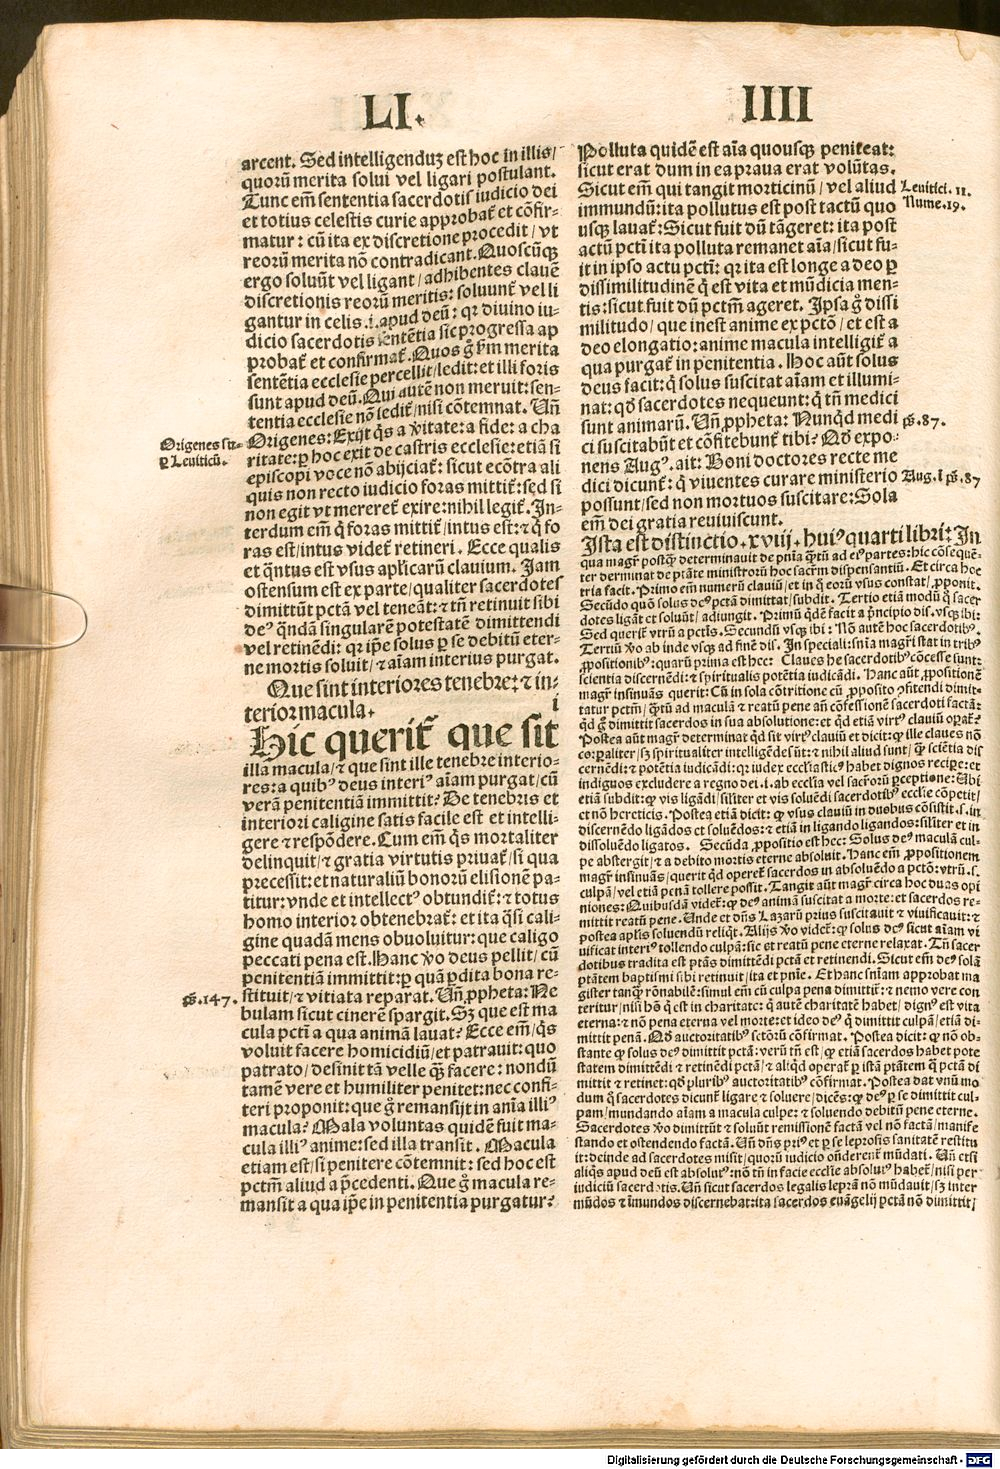 LI.
IIII
arcent. Sed intelligenduz est hoc in illis/
quorū merita solui vel ligari postulant.
Tunc em̄ sententia sacerdotis iudicio dei
et totius celestis curie approbat᷑ et cōfir-
matur: cū ita ex discretione procedit/ vt
reorū merita nō contradicant. Quoscūqꝫ
ergo soluūt vel ligant/ adhibentes clauē
discretionis reorū meritis: soluunt᷑ vel li
gantur in celis .i. apud deū: qꝛ diuino iu-
dicio sacerdotis sentētia sic progressa ap
probat᷑ et confirmat᷑. Quos g̊ ẜm merita
sentētia ecclesie percellit/ ledit: et illi foris
sunt apud deū. Qui autē non meruit: sen-
tentia ecclesie nō ledit᷑/ nisi cōtemnat. Vn̄
Origenes: Exijt q̇s a v̓itate: a fide: a cha
ritate: ꝑ hoc exit de castris ecclesie: etiā si
episcopi voce nō abijciat᷑: sicut ecōtra ali
quis non recto iudicio foras mittit᷑: sed si
non egit vt mereret᷑ exire: nihil legit᷑. In-
terdum em̄ q̇ foras mittit᷑/ intus est: ⁊ q̇ fo
ras est/ intus videt᷑ retineri. Ecce qualis
et q̄ntus est vsus aplicarū clauium. Jam
ostensum est ex parte/ qualiter sacerdotes
dimittūt pctā vel teneāt: ⁊ tn̄ retinuit sibi
deꝰ q̄ndā singularē potestatē dimittendi
vel retinēdi: qꝛ ip̄e solus ꝑ se debitū eter-
ne mortis soluit/ ⁊ aīam interius purgat.
Que sint interiores tenebre: ⁊ in-
terior macula.
i
Hic querit᷑ que sit
illa macula/ ⁊ que sint ille tenebre interio-
res: a quibꝰ deus interiꝰ aīam purgat/ cū
verā penitentiā immittit? De tenebris et
interiori caligine satis facile est et intelli-
gere ⁊ respōdere. Cum em̄ q̇s mortaliter
delinquit/ ⁊ gratia virtutis priuat᷑/ si qua
precessit: et naturaliū bonorū elisionē pa-
titur: vnde et intellectꝰ obtundit᷑: ⁊ totus
homo interior obtenebrat᷑: et ita q̄si cali-
gine quadā mens obuoluitur: que caligo
peccati pena est. Hanc v̊o deus pellit/ cū
penitentiā immittit: ꝑ quā ꝑdita bona re-
stituit/ ⁊ vitiata reparat. Vn̄ ꝓpheta: Ne
bulam sicut cinerē spargit. Sꝫ que est ma
cula pcti a qua animā lauat? Ecce em̄/ q̇s
voluit facere homicidiū/ et patrauit: quo
patrato/ desinit tā velle q̄ꝫ facere: nondū
tamē vere et humiliter penitet: nec confi-
teri proponit: que g̊ remansijt in aīa illiꝰ
macula? Mala voluntas quidē fuit ma-
cula illiꝰ anime: sed illa transit. Macula
etiam est/ si penitere cōtemnit: sed hoc est
pctm̄ aliud a p̄cedenti. Que g̊ macula re-
mansit a qua ip̄e in penitentia purgatur?
Origenes su-
ꝑ Leuiticū.
ps̄.147.
Polluta quidē est aīa quousqꝫ peniteat:
sicut erat dum in ea praua erat volūtas.
Sicut em̄ qui tangit morticinū/ vel aliud
immundū: ita pollutus est post tactū quo
usqꝫ lauat᷑: Sicut fuit dū tāgeret: ita post
actū pcti ita polluta remanet aīa/ sicut fu-
it in ipso actu pcti: qꝛ ita est longe a deo ꝑ
dissimilitudinē q̇ est vita et mūdicia men-
tis: sicut fuit dū pctm̄ ageret. Ipsa g̊ dissi
militudo/ que inest anime ex pctō/ et est a
deo elongatio: anime macula intelligit᷑ a
qua purgat᷑ in penitentia. Hoc aūt solus
deus facit: q̇ solus suscitat aīam et illumi-
nat: qd̓ sacerdotes nequeunt: q̇ tn̄ medici
sunt animarū. Vn̄ ꝓpheta: Nunqd̓ medi
ci suscitabūt et cōfitebunt᷑ tibi? Qd̓ expo-
nens Augꝰ. ait: Boni doctores recte me
dici dicunt᷑: q̇ viuentes curare ministerio
possunt/ sed non mortuos suscitare: Sola
em̄ dei gratia reuiuiscunt.
Leuitici. 11.
Nume.19.
ps̄.87.
Aug. ī ps̄.87
Ista est distinctio .xviij. huiꝰ quarti libri: In
qua magr̄ postq̄ determinauit de pn̄ia q̄tū ad eiꝰ partes: hic cōsequē-
ter determinat de ptāte ministrorū hoc sacrm̄ dispensantiū. Et circa hoc
tria facit. Primo em̄ numerū clauiū/ et in q̇ eorū vsus constat/ ꝓponit.
Secūdo quō solus deꝰ pctā dimittat/ subdit. Tertio etiā modū q̇ sacer
dotes ligāt et soluūt/ adiungit. Primū q̇dē facit a p̄ncipio dis. vsqꝫ ibi:
Sed querit᷑ vtrū a pctis. Secundū vsqꝫ ibi: Nō autē hoc sacerdotibꝰ.
Tertiū v̊o ab inde vsqꝫ ad finē dis. In speciali: sn̄ia magr̄i stat in tribꝰ
ꝓpositionibꝰ: quarū prima est hec: Claues he sacerdotibꝰ cōcesse sunt:
scientia discernēdi: ⁊ spiritualis potētia iudicādi. Hanc aūt ꝓpositionē
magr̄ insinuās querit: Cū in sola cōtritione cū ꝓposito ꝯfitendi dimit-
tatur pctm̄/ q̄tū ad maculā ⁊ reatū pene an̄ cōfessionē sacerdoti factā:
qd̓ g̊ dimittit sacerdos in sua absolutione: et qd̓ etiā virtꝰ clauiū operat᷑?
Postea aūt magr̄ determinat qd̓ sit virtꝰ clauiū et dicit: ꝙ ille claues nō
corꝑaliter/ sꝫ spiritualiter intelligēde sūt: ⁊ nihil aliud sunt/ q̄ꝫ sciētia dis
cernēdi: ⁊ potētia iudicādi: qꝛ iudex ecclīasticꝰ habet dignos recipere: et
indignos excludere a regno dei .i. ab ecclīa vel sacr̄orū ꝑceptione: Ubi
etiā subdit: ꝙ vis ligādi/ silīter et vis soluēdi sacerdotibꝰ ecclīe cōpetit/
et nō hereticis. Postea etiā dicit: ꝙ vsus clauiū in duobus cōsistit .s. in
discernēdo ligādos et soluēdos: ⁊ etiā in ligando ligandos: silīter et in
dissoluēdo ligatos. Secūda ꝓpositio est hec: Solus deꝰ maculā cul-
pe abstergit/ ⁊ a debito mortis eterne absoluit. Hanc em̄ ꝓpositionem
magr̄ insinuans/ querit qd̓ operet᷑ sacerdos in absoluēdo a pctō: vtrū .s.
culpā/ vel etiā penā tollere possit. Tangit aūt magr̄ circa hoc duas opi
niones: Quibusdā videt᷑: ꝙ deꝰ animā suscitat a morte: et sacerdos re-
mittit reatū pene. Unde et dn̄s Lazarū prius suscitauit ⁊ viuificauit: ⁊
postea aplīs soluendū reliq̇t. Alijs v̊o videt᷑: ꝙ solus deꝰ sicut aīam vi
uificat interiꝰ tollendo culpā: sic et reatū pene eterne relaxat. Tn̄ sacer
dotibus tradita est ptās dimittēdi pctā et retinendi. Sicut em̄ deꝰ solā
ptātem baptismi sibi retinuit/ ita et pn̄ie. Et hanc sn̄iam approbat ma
gister tanq̄ꝫ rōnabilē: simul em̄ cū culpa pena dimittit᷑: ⁊ nemo vere con
teritur/ nisi hn̄s q̇ est in charitate: q̇ autē charitatē habet/ dignꝰ est vita
eterna: ⁊ nō pena eterna vel morte: et ideo deꝰ q̇ dimittit culpā/ etiā di-
mittit penā. Qd̓ auctoritatibꝰ sctōrū cōfirmat. Postea dicit: ꝙ nō ob-
stante ꝙ solus deꝰ dimittit pctā: verū tn̄ est/ ꝙ etiā sacerdos habet pote
statem dimittēdi ⁊ retinēdi pctā/ ⁊ aliqd̓ operat᷑ ꝑ istā ptātem q̇ pctā di
mittit ⁊ retinet: qd̓ pluribꝰ auctoritatibꝰ cōfirmat. Postea dat vnū mo
dum q̇ sacerdotes dicunt᷑ ligare ⁊ soluere/ dicēs: ꝙ deꝰ ꝑ se dimittit cul-
pam/ mundando aīam a macula culpe: ⁊ soluendo debitū pene eterne.
Sacerdotes v̊o dimittūt ⁊ soluūt remissionē factā vel nō factā/ manife
stando et ostendendo factā. Vn̄ dn̄s priꝰ et ꝑ se leprosis sanitatē restitu
it: deinde ad sacerdotes misit/ quorū iudicio on̄derent᷑ mūdati. Vn̄ etsi
aliq̇s apud deū est absolutꝰ: nō tn̄ in facie ecclīe absolutꝰ habet᷑/ nisi per
iudiciū sacerdotis. Vn̄ sicut sacerdos legalis leprā nō mūdauit/ sꝫ inter
mūdos ⁊ īmundos discernebat: ita sacerdos euāgelij pctā nō dimittit/
Digitalisierung gefördert durch die Deutsche Forschungsgemeinschaft - DFG